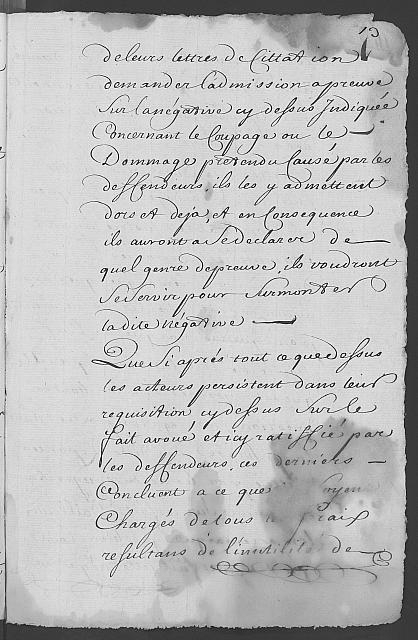 13
de leurs lettres de Cittation
demander l'admission a preuve
Sur la négative cy dessus Indiquée
Concernant le Coupage ou le
Dommage pretendu Causé par les
deffendeurs, ils les y admettent
dors et deja, et en Consequence
ils auront a Se declarer de
quel genre de preuve, ils voudront
Se Servir pour Surmonter
la dite négative
Que Si aprés tout ce que dessus
les acteurs persistent dans leur
requisition cy dessus Sur le
fait avoué et icy ratiffié par
les deffendeurs, ces derniers
Concluent a ce que
Chargés de tous frais
resultans de l'inutilité de